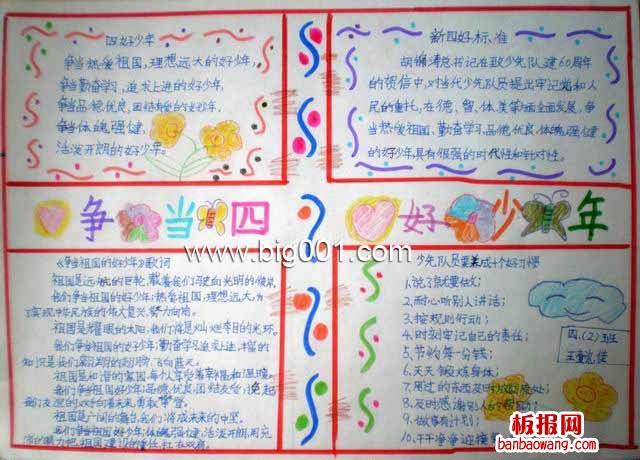 四好少年
争当热爱祖国,理想远大的好少年;
争当勤奋学习,追求上进的好少年;
争当品德优良,团结友爱的好少年;
争当体魄强健,
活泼开朗的好少年。
新四好标准
胡锦涛总书记在致少先队建60周年
的贺信中,对当代少先队员提出牢记党和人
民的重托,在德、智、体、美等方面全面发展,争
当热爱祖国,勤奋学习,品德优良,体魄强健
的好少年,具有很强的时代性和针对性。
争当四好少年
www.big001.com
《争当祖国的好少年》歌词
祖国是远航的巨轮,载着我们驶向光明的
我们争当祖国的好少年,热爱祖国,理想远大,为
了实现中华民族的伟大复兴,努力向前。
祖国是耀眼的太阳,我们将是灿烂夺目的光环。
我们争当祖国的好少年,勤奋学习,追求上进,丰富的
知识是我们飞翔的翅膀,飞向蓝天。
祖国是和谐的家园,每个人享受着幸福和温暖。
我们争当祖国好少年,品德优良,团结友爱,
祖国是广阔的舞台,我们将成未来的中坚。
我们争当祖国好少年,体魄强健,活泼开朗,用充
少先队员要养成十个好习惯
1、说了就要做;
2、耐心听别人讲话;
3、按规则行动;
4、时刻牢记自己的责任;
5、节约每一分钱;
6、天天锻炼身体;
7、用过的东西放回
8、及时感谢别人的帮助;
9、做事有计划;
10、干干净净迎接
四、(2)班
板报网
banbaowang.com